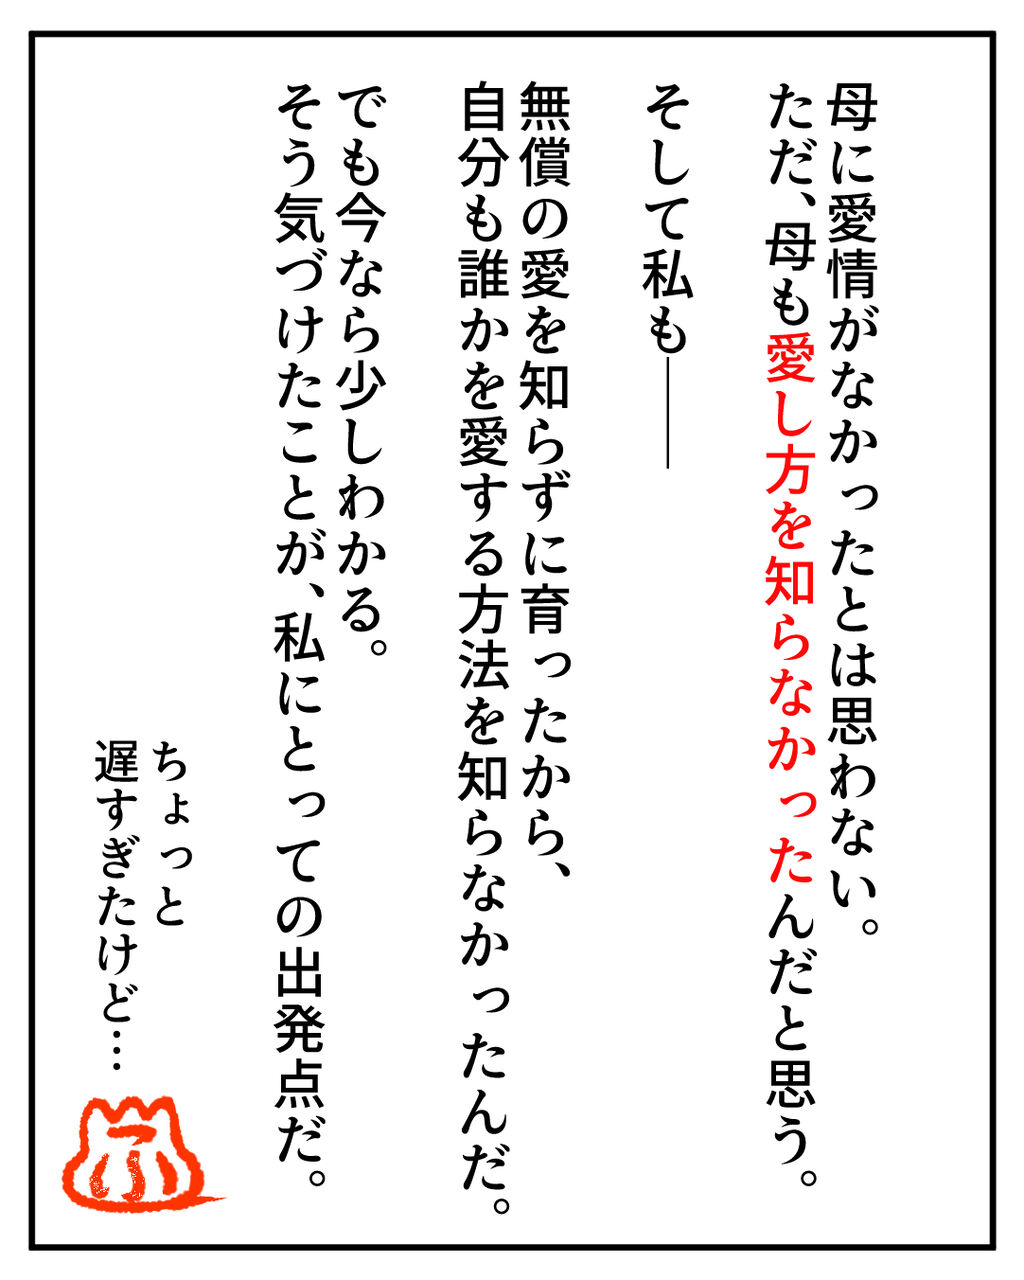 母に愛情がなかったとは思わない。
ただ、母も愛し方を知らなかったんだと思う。
そして私も――
無償の愛を知らずに育ったから、
自分も誰かを愛する方法を知らなかったんだ。
でも今なら少しわかる。
そう気づけたことが、私にとっての出発点だ。
ちょっと
遅すぎたけど…
ふ